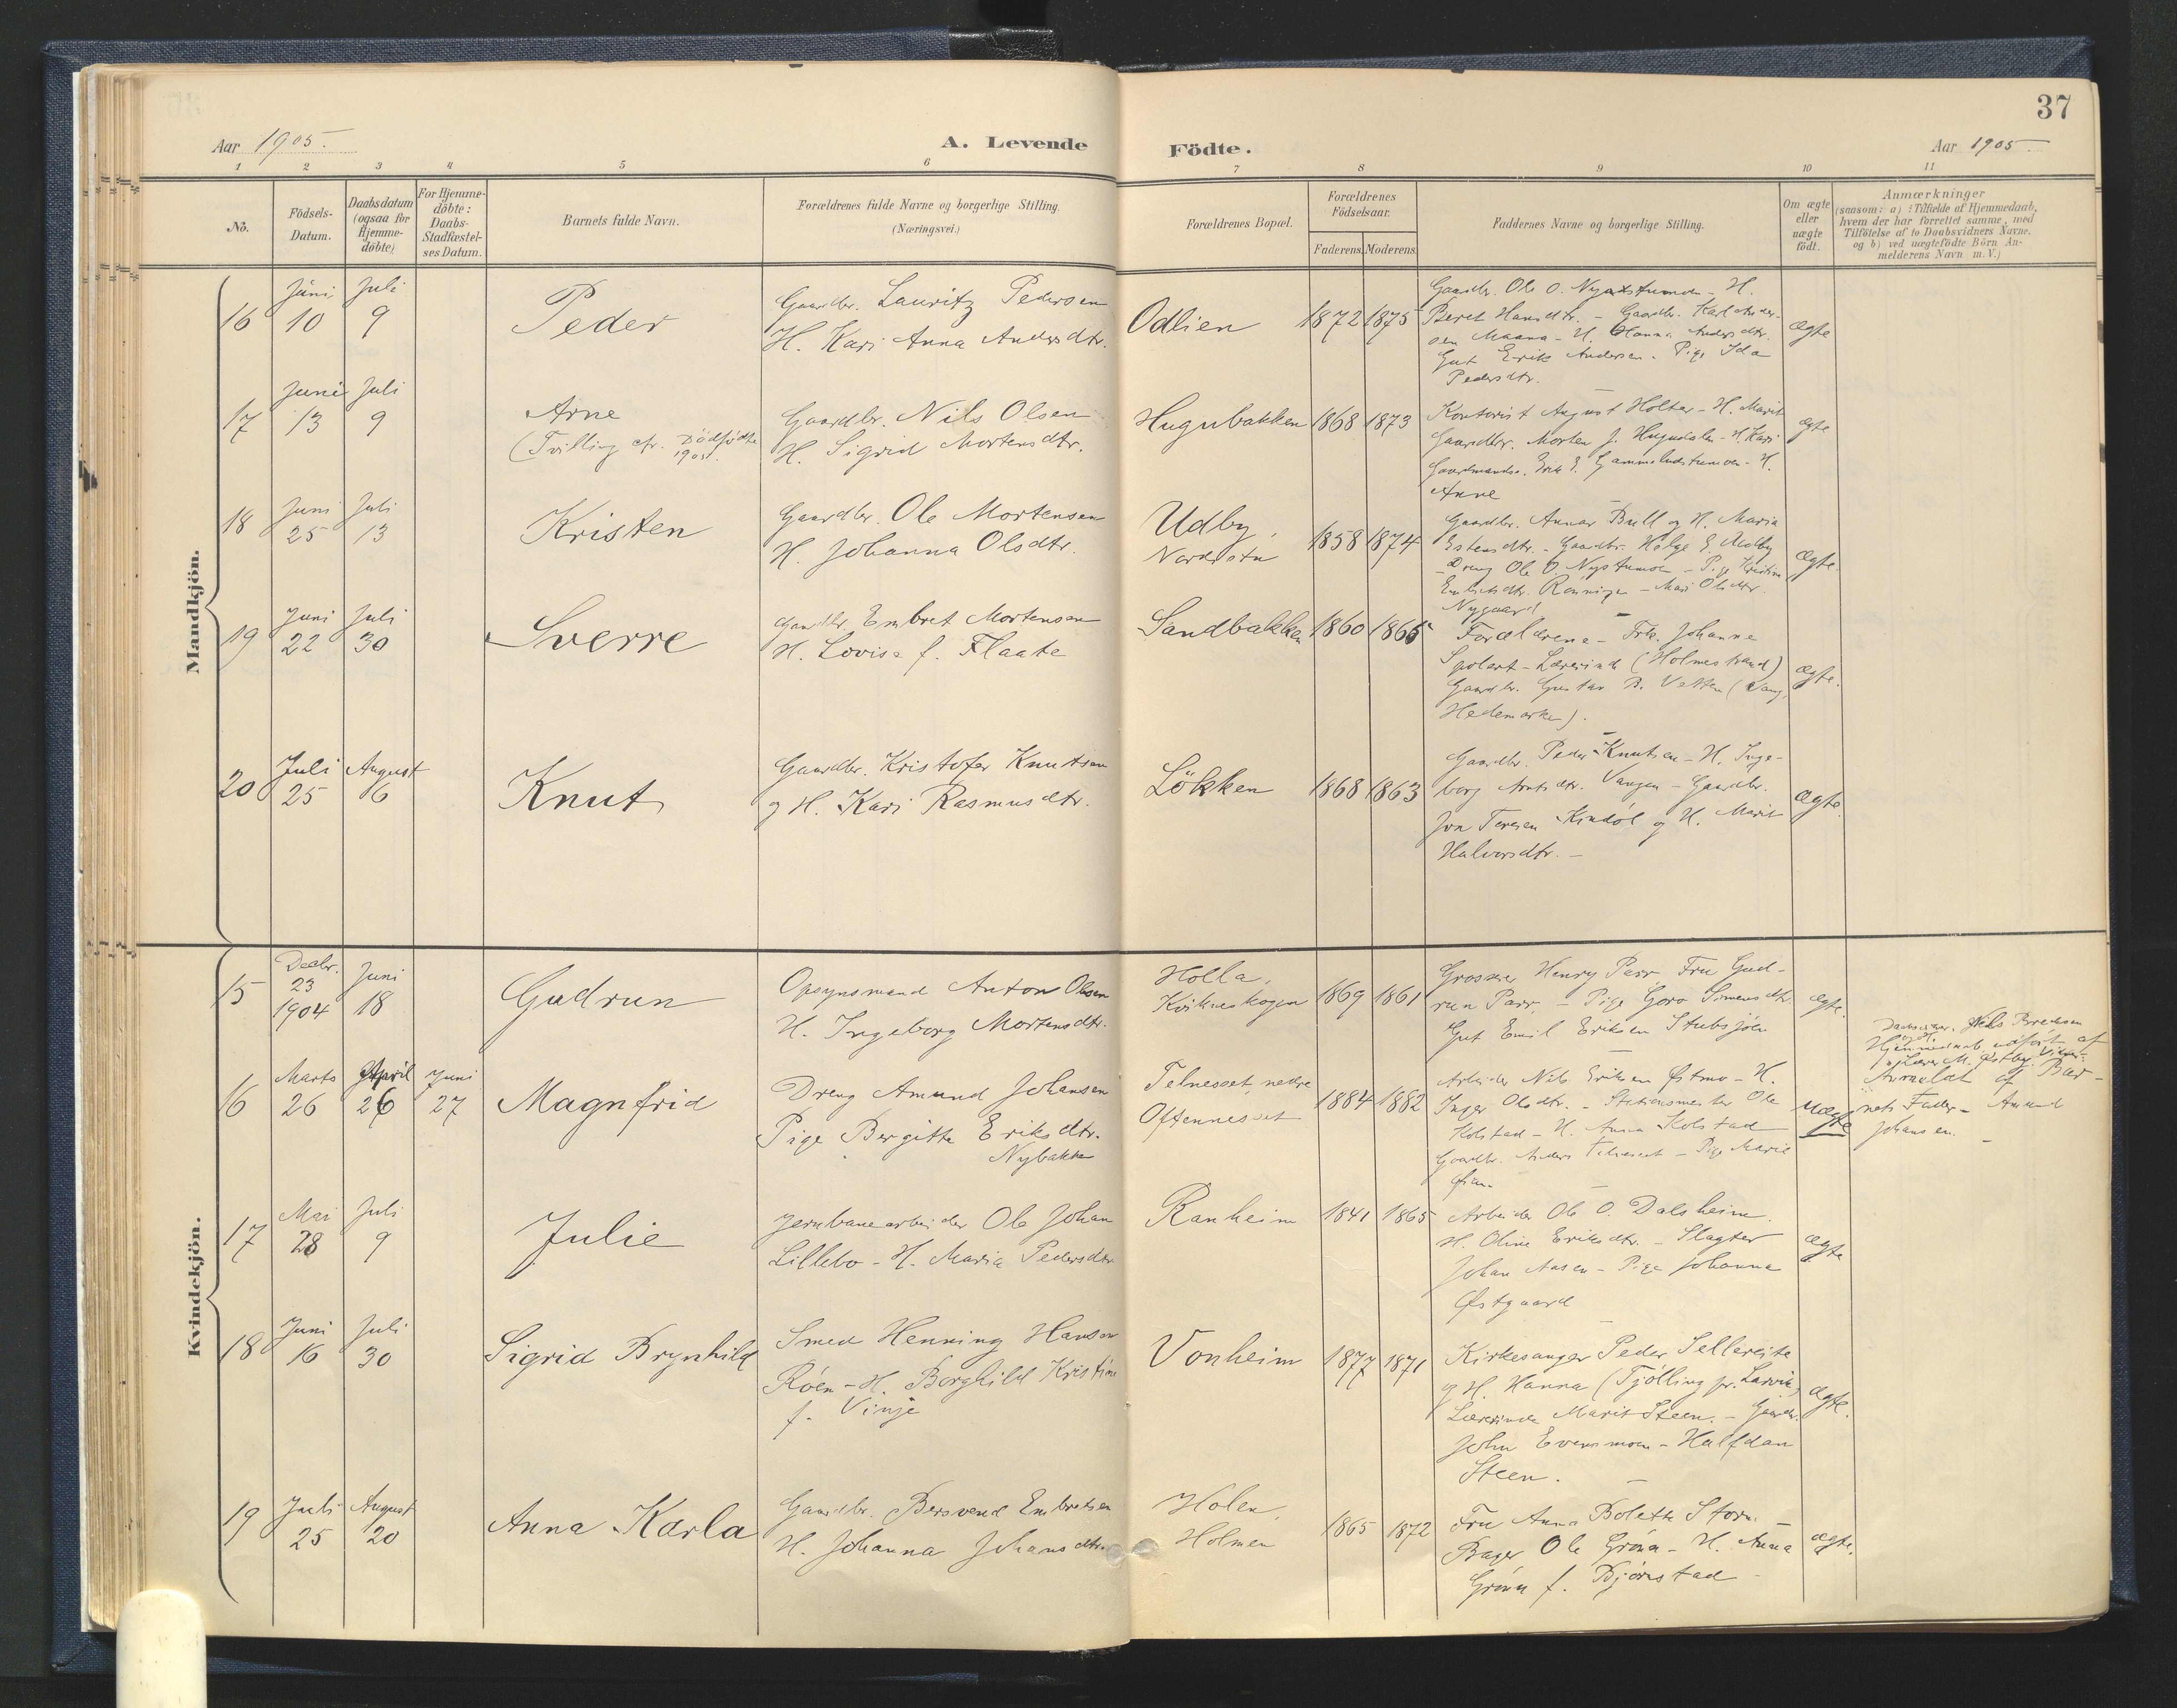 37
Aar 1905.
A. Levende Födte.
Aar 1905.
1 2 3 4 5 6 7 8 9 10 11
No.
Födsels-
Datum.
Daabsdatum
(ogsaa for
Hjemme-
döbte)
For Hjemme-
döbte:
Daabs-
Stadfæstel-
ses Datum.
Barnets fulde Navn.
Forældrenes fulde Navne og borgerlige Stilling.
(Næringsvei.)
Forældrenes Bopæl.
Forældrenes
Födselsaar.
Faderens. Moderens.
Faddernes Navne og borgerlige Stilling.
Om ægte
eller
uægte
födt.
Anmærkninger
(saasom: a) i Tilfælde af Hjemmedaab,
hvem der har forrettet samme, med
Tilföielse af to Daabsvidners Navne.
og b) ved uægtefödte Börn An-
melderens Navn m.V.)
Mandkjön.
16
Juni
10
Juli
9
Peder
Gaardbr. Lauritz Pedersen
H. Kari Anna Andersdtr.
Odlien
1872 1875
Gaardbr. Ole O. Nystumoen - H.
Beret Hansdtr. - Gaardbr. Karl Ander-
sen Maana - H. Hanna Andersdtr.
Gut Erik Andersen. Pige Ida
Pedersdtr.
ægte
17
Juni
13
Juli
9
Arne
(Tvilling cfr. Dödfödte
1905.
Gaardbr. Nils Olsen
H. Sigrid Mortensdtr.
Hugubakken
1868 1873
Kontorist August Holter - H. Marit
Gaardbr. Morten J. Hugudalen - H. Kari
Gaardmands. Erik E. - H.
Anne
ægte
18
Juni
25
Juli
13
Kristen
Gaardbr. Ole Mortensen
H. Johanna Olsdtr.
Udby,
Nordistu
1858 1874
Gaardbr. Annar Bull og H. Maria
Estensdtr. - Gaardbr. Helge E. Udby
Dreng Ole O. Nystumoen - Pige Kristine
Embretsdtr. Rønningen - Mari Olsdtr.
Nygaard
ægte.
19
Juni
22
Juli
30
Sverre
Gaardbr. Embret Mortensen
H. Lovise f. Flaate
Sandbakken
1860 1865
Forældrene - Frk. Johanne
- Lærerinde (Holmestrand)
Gaardbr. Gustav B. Vetten (Vang,
Hedemarken).
ægte.
20
Juli
25
August
6
Knut
Gaardbr. Kristofer Knutsen
og H. Kari Rasmusdtr.
Lökken
1868 1863
Gaardbr. Peder Knutsen - H. Inge-
borg Arntsdtr. Vangen - Gaardbr.
Jon Kindöl og H. Marit
Halvorsdtr. -
ægte.
Kvindekjön.
15
Decbr.
23
1904
Juni
18
Gudrun
Opsynsmand Anton Olsen
H. Ingeborg Mortensdtr.
Holla,
Kvikneskogen
1869 1861
Grosserer Henry Parr Fru Gud-
run Parr. - Pige Goro Simensdtr.
Gut Emil Eriksen Stubsjöen
ægte.
16
Marts
26
April
26
Juni
27
Magnfrid
Dreng Amund Johansen
Pige Bergitte Eriksdtr.
Nybakken
Telneset, nedre
Oftenneset
1884 1882
Arbeider Nils Eriksen Østmo - H.
Inger Olsdtr. - Stationsmester Ole
Kolstad - H. Anna Kolstad
Gaardbr. Anders Telneset - Pige Marie
uægte
Hjemmedaab udført af
Lærer M. Østby.
Anmeldt af Bar-
nets Fader - Amund
Johansen.
17
Mai
28
Juli
9
Julie
Jernbanearbeider Ole Johan
Lillebo - H. Maria Pedersdtr.
Ranheim
1841 1865
Arbeider Ole O. Dalsheim.
H. Oline Eriksdtr. - Slagter
Johan Aasen - Pige Johanna
Østgaard
ægte
18
Juni
16
Juli
30
Sigrid Brynhild
Smed Henning Hansen
Röen - H. Borghild Kristine
f. Vinje
Vonheim
1877 1871
Kirkesanger Peder Sellereite
og H. Hanna (Tjölling pr. Larvik)
Lærerinde Marit Steen. - Gaardbr.
John Evensmoen - Halfdan
Steen.
ægte.
19
Juli
25
August
20
Anna Karla
Gaardbr. Bersvend Embretsen
H. Johanna Johansdtr.
Holen,
Holmen
1865 1872
Fru Anna Bolette Storm -
Bager Ole Grönn - H. Anna
Grönn f. Bjørnstad
ægte.